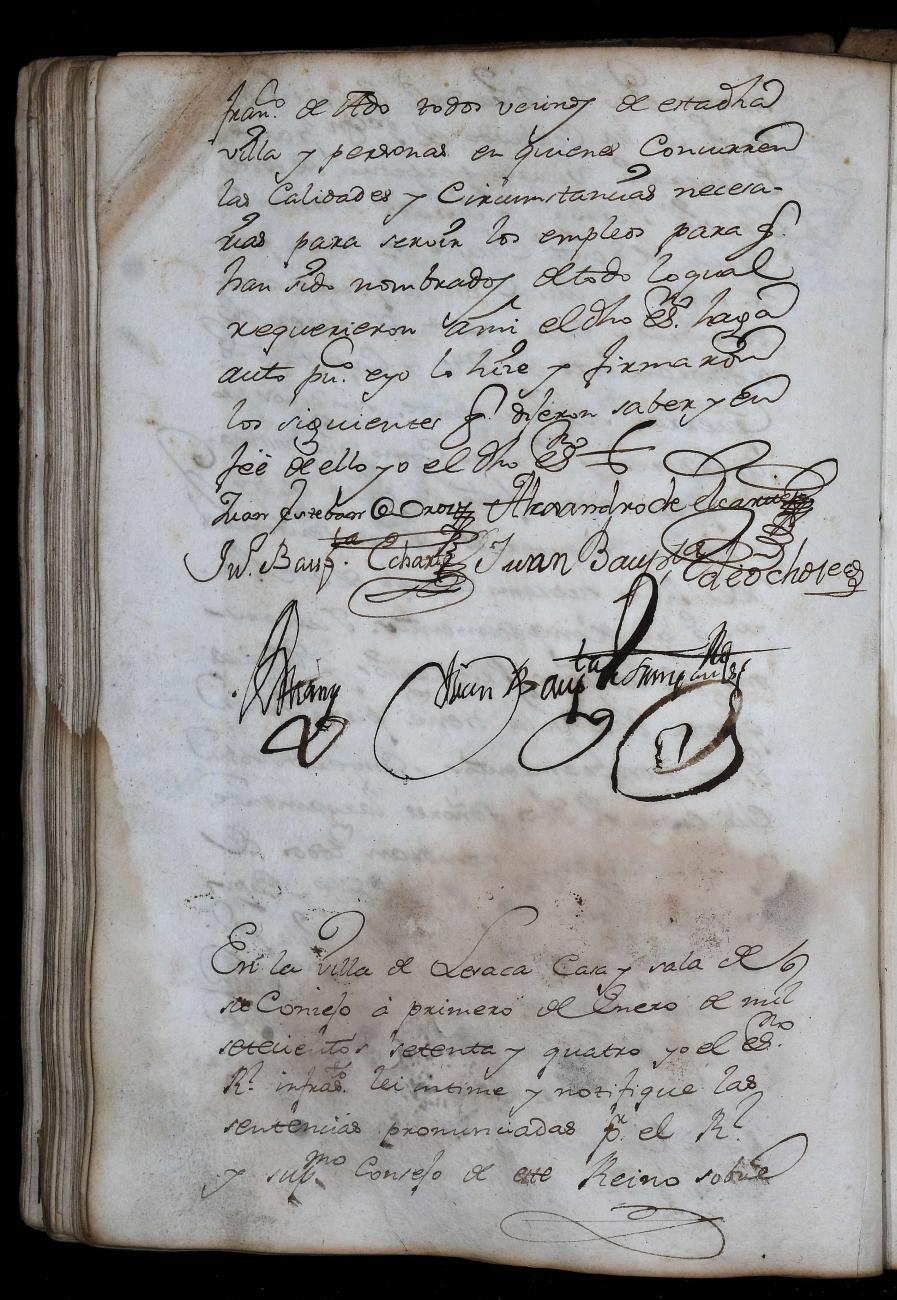 Fran.co de Ado todos vecinos de esta dha
villa y personas en quienes Concurren
las Calidades y Circumstancias necesa-
rias para servir los empleos para q.
han sido nombrados, del todo lo qual
requerieron a mi el dho es.no haga
auto pu.co e yo lo hize y firmaron
los siguientes q. dijeron saber y en
feé de ello yo el dho es.no
Juan Esteban Alexandro de
Ju.n Baup.ta Echart Juan Baup.ta de ochoteco
Juan Baup.ta
En la villa de Lesaca Casa y sala de
su Consejo à primero de Enero de mil
setecientos setenta y quatro yo el es.no
R.l infras.to lei intime y notifique las
sentencias pronunciadas p.r el R.l
y sup.mo Consejo de este Reino sobre